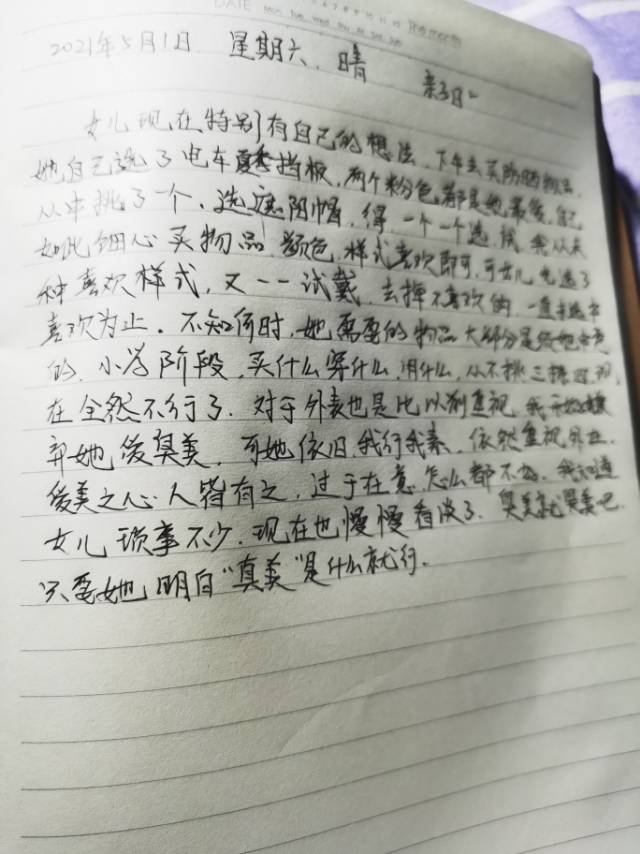 DATE
2021年5月1日 星期六. 晴
女儿现在特别有自己的想法. 下午去买防晒物品,
她自己选了电车夏季挡板, 两个粉色都是她最爱,
从中挑了一个. 选遮阳帽, 得一个一个选,
如此细心买物品! 颜色, 样式喜欢即可, 可女儿先选了
种喜欢样式, 又一一试戴, 去掉不喜欢的, 一直
喜欢为止. 不知何时, 她需要的物品大部分是
的. 小学阶段, 买什么穿什么, 用什么, 从不挑三拣四, 现
在全然不行了. 对于外表也是比以前重视, 我开始嫌
弃她爱臭美, 可她依旧我行我素, 依然重视外在.
爱美之心人皆有之, 过于在意怎么都不好. 我知道
女儿琐事不少. 现在也慢慢看淡了. 臭美就臭美吧.
只要她明白“真美”是什么就行.